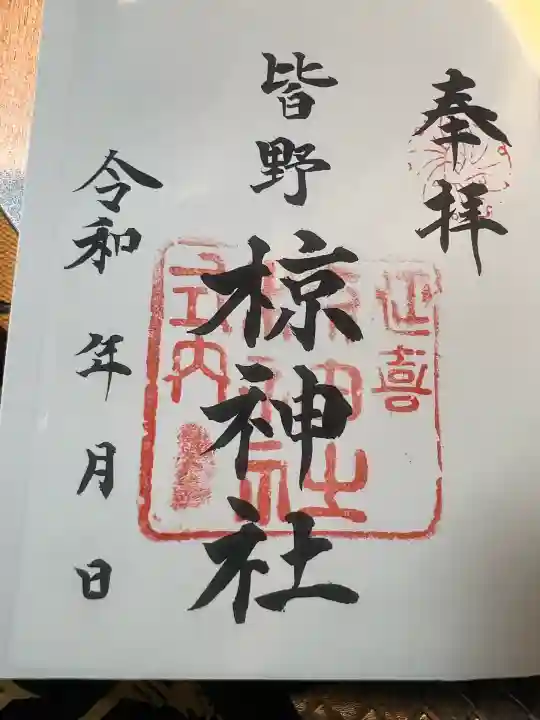 奉拝
皆野
椋神社
延喜
式内
令和 年 月 日